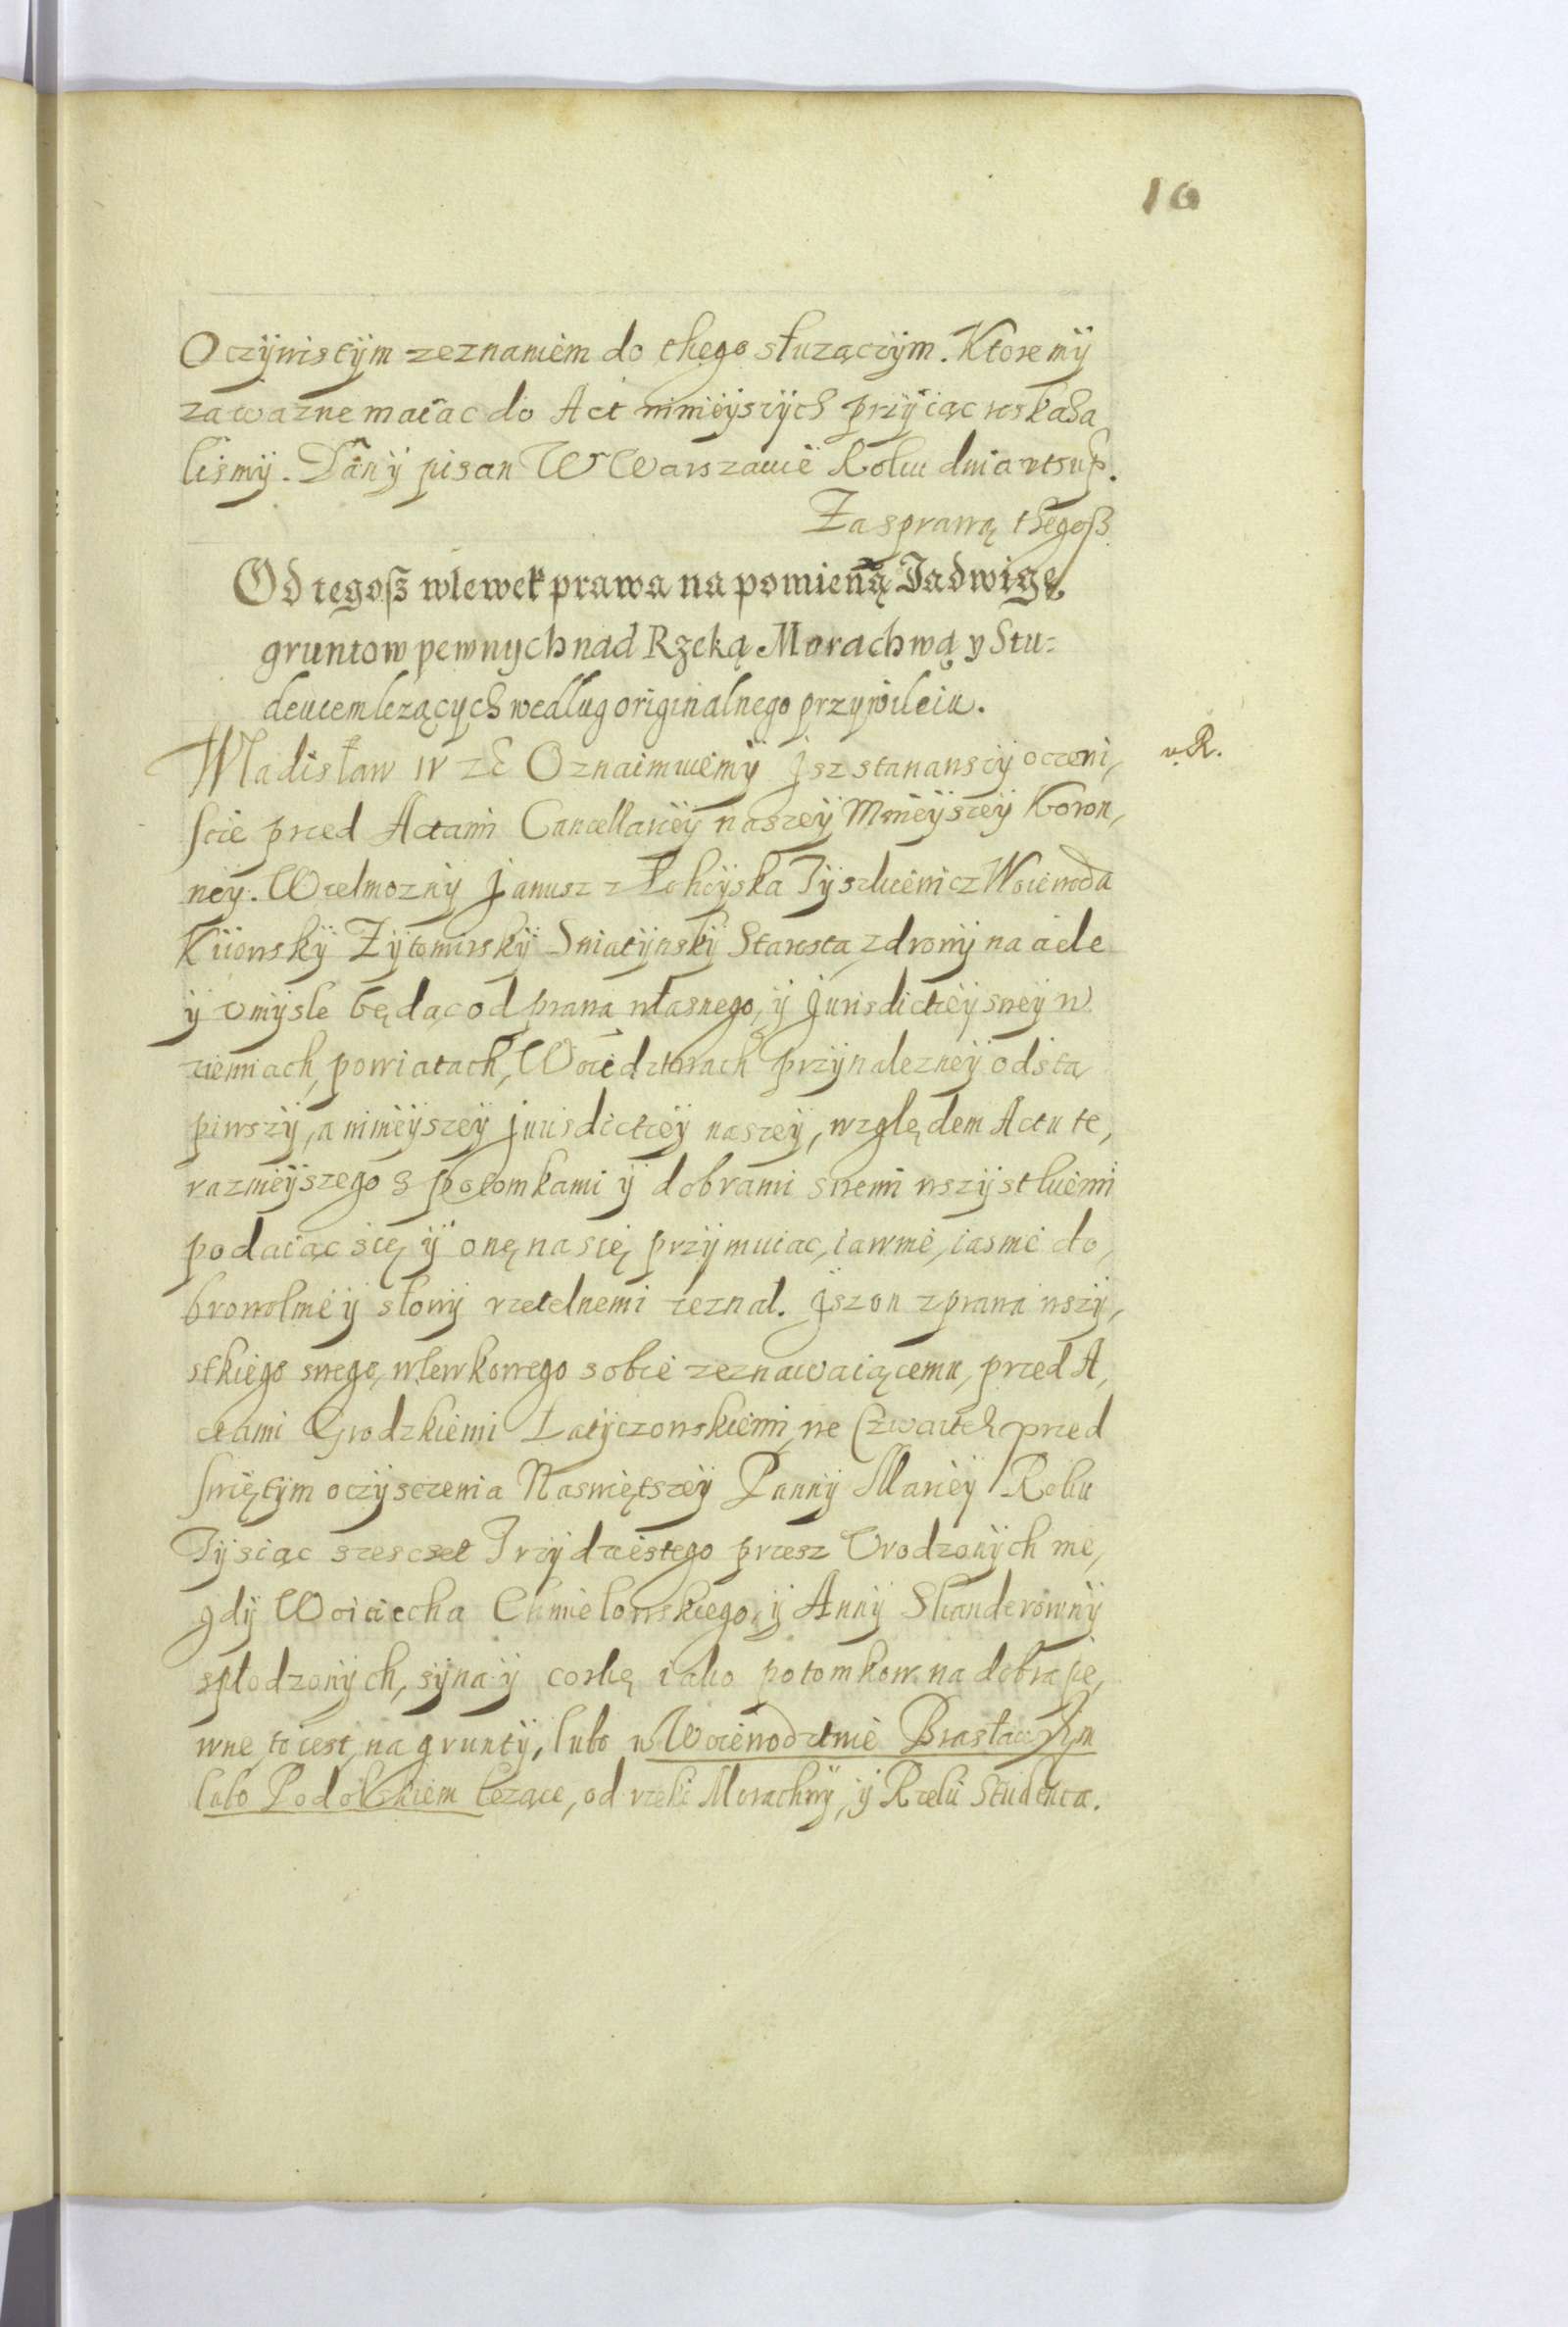 10
Oczÿwistÿm zeznaniem do thego słuzączÿm. Ktore mÿ
za wazne maiac do Act ninieÿszÿch przÿiąc wskaza
lismÿ. Dan ÿ pisan W Warszawie Roku dnia vtsup.
Za sprawą thegosz
Od tegosz wlewek prawa na pomieną Jadwigę
gruntow pewnych nad Rzeką Morachwą y Stu-
deucem lezących według originalnego przywileiu.
Władisław IV zc Oznaimuiemÿ Jsz stanawszÿ oczewi,
v. R.
scie przed Actami Cancellarieÿ naszeÿ Mnieÿszeÿ Koron,
neÿ. Wielmoznÿ Janusz z Łohoÿska Tÿszkiewicz Woiewoda
Kiiowskÿ Zÿtomirskÿ Sniatÿnskÿ Starosta zdrowÿ na ciele
ÿ vmÿsle będąc od prawa własnego, ÿ Jurisdictieÿ sweÿ w
ziemiach, powiatach, Woiedztwach przÿnalezneÿ odsta
piwszÿ, a ninieÿszeÿ Jurisdictieÿ naszeÿ, względem Actu te,
raznieÿszego z potomkami ÿ dobrami swemi wszÿstkiemi
podaiąc się ÿ onę na się przÿmuiac, iawnie, iasnie do,
browolnie ÿ słowÿ rzetelnemi zeznał. Jsz on z prawa wszÿ,
stkiego swego, wlewkowego sobie zeznawaiącemu, przed A,
ctami Grodzkiemi Latÿczowskiemi, we Czwartek przed
swiętÿm oczÿsczenia Naswiętszeÿ Pannÿ Marieÿ Roku
Tÿsiąc szescset Trzÿdziestego przesz Vrodzonÿch nie,
gdÿ Woiciecha Chmielowskiego, ÿ Annÿ Skanderownÿ
spłodzonÿch, sÿna ÿ corkę iako potomkow na dobra pe,
wne to iest, na gruntÿ, lubo w Woiewodztwie Brasławskim
lubo Podolskiem lezące, od rzeki Morachwÿ, ÿ Rzeki Studenca.